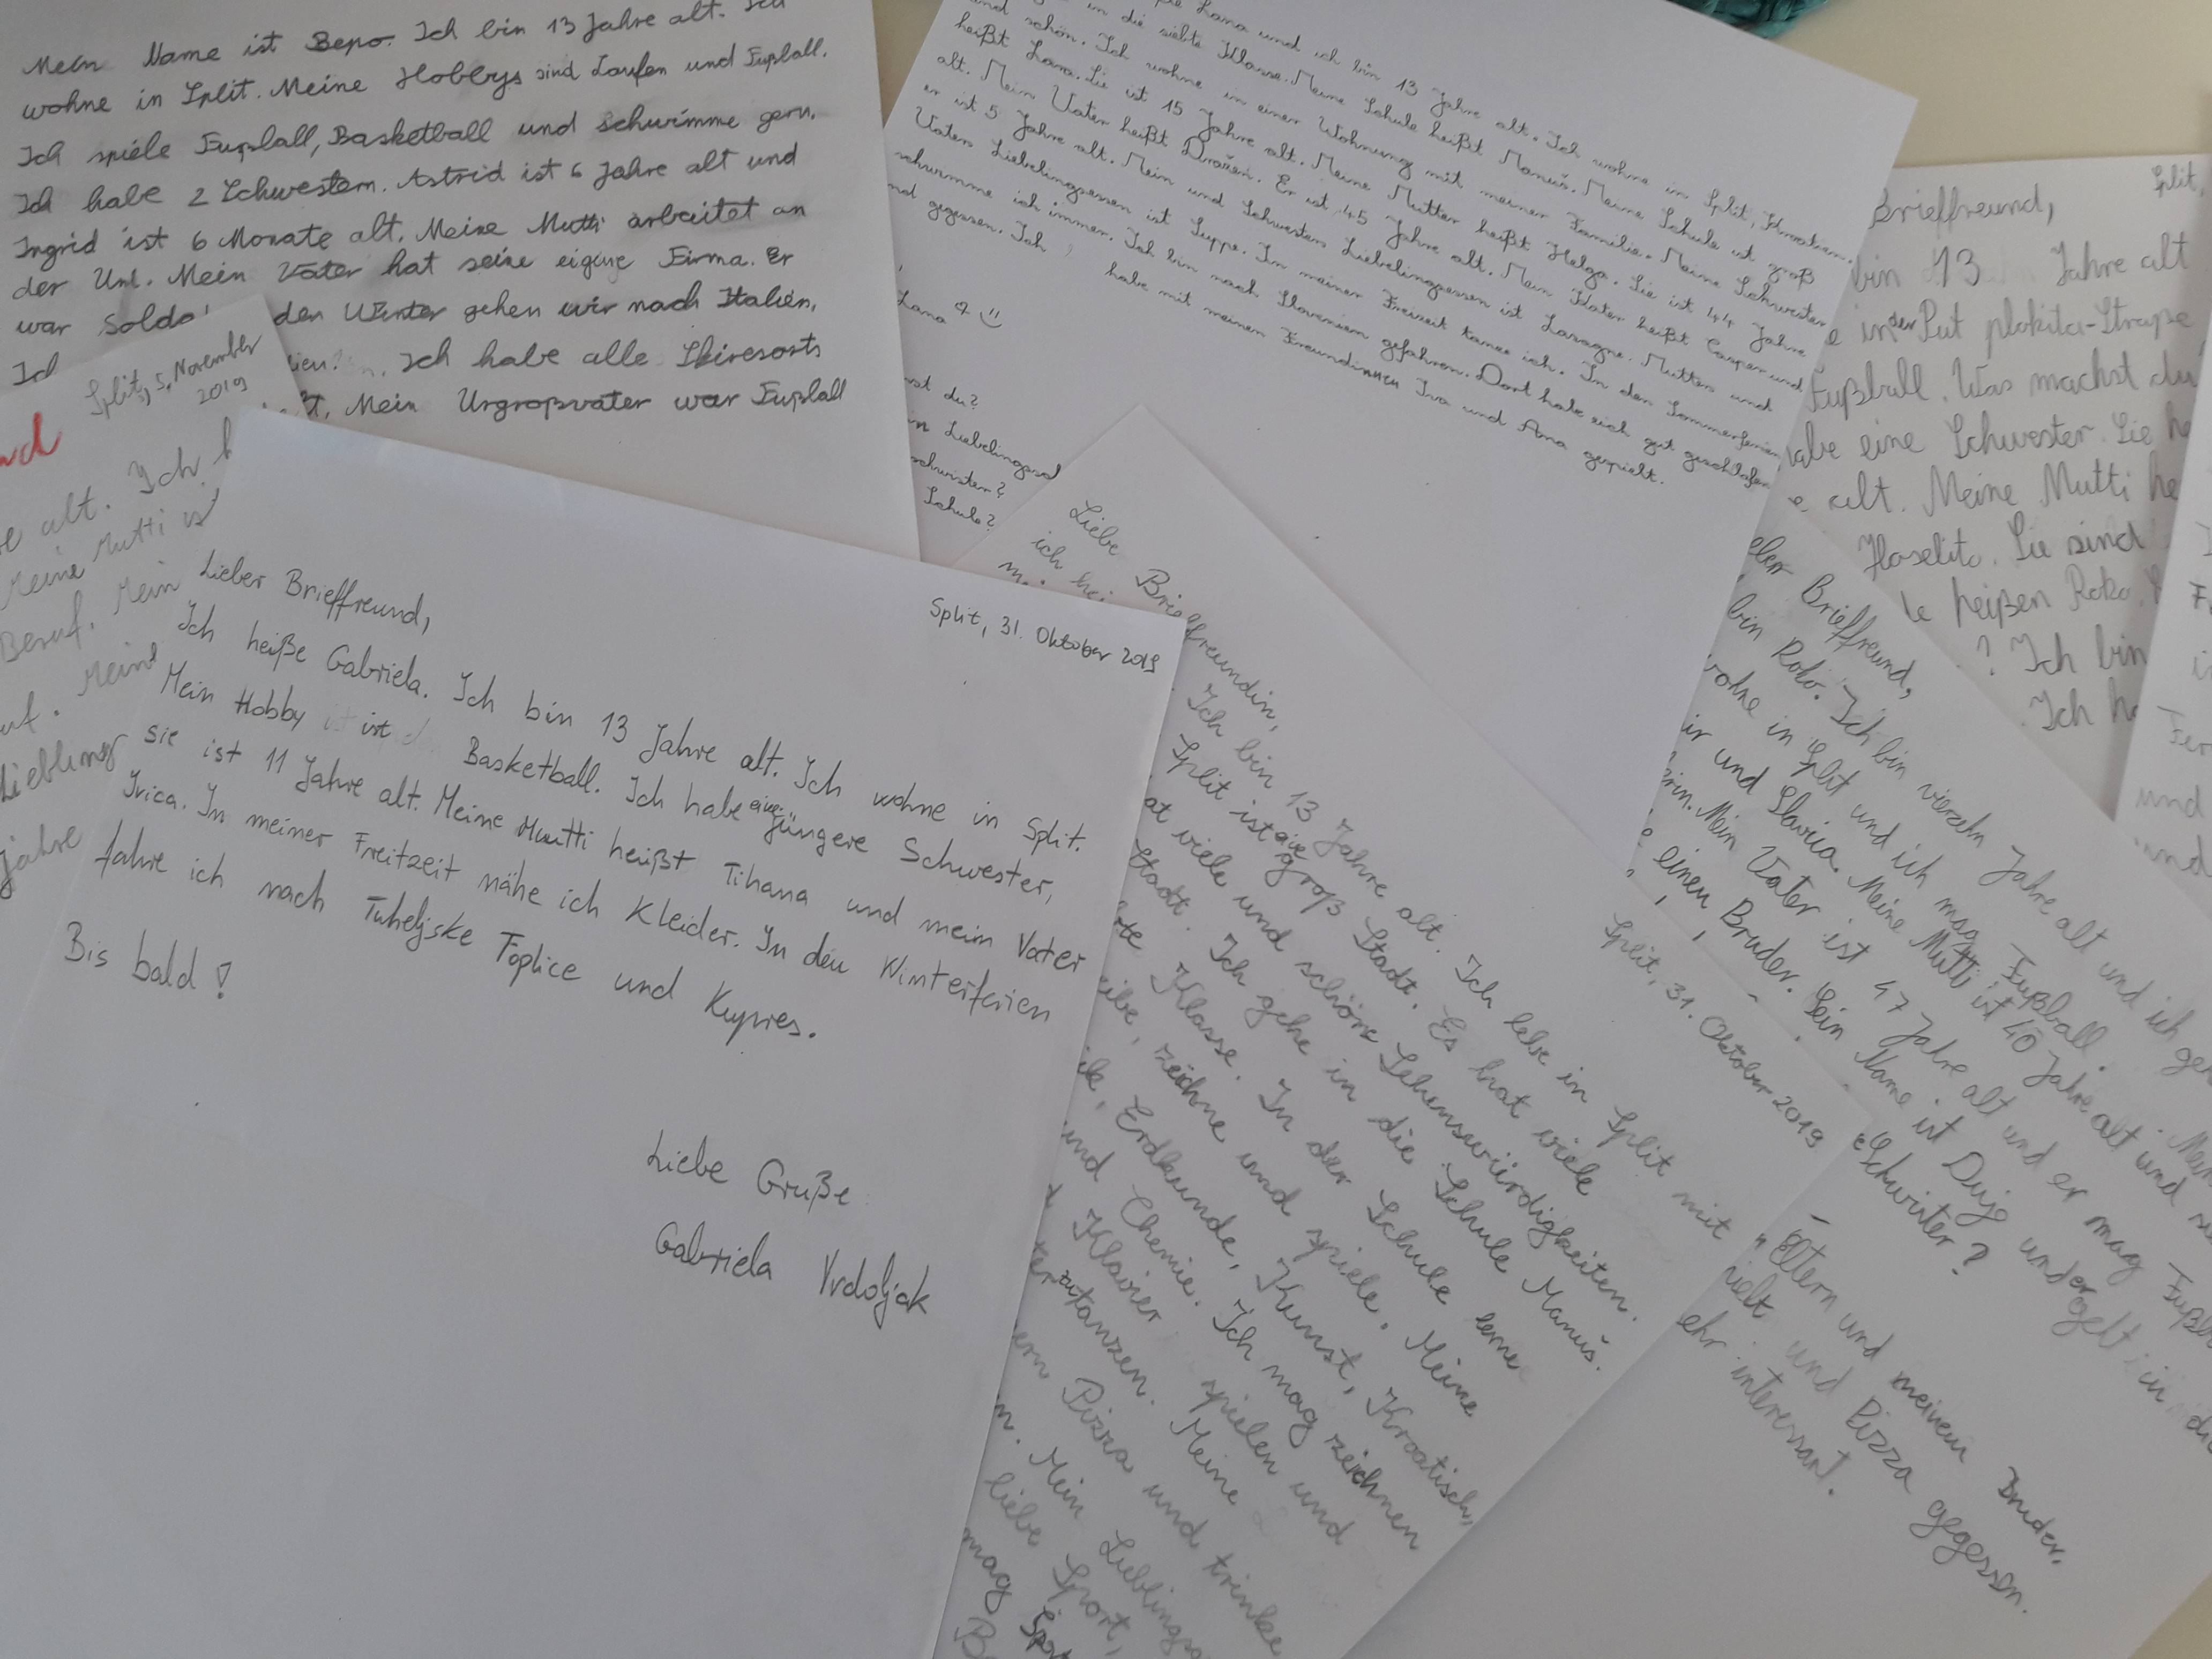 Mein Name ist Bepo. Ich bin 13 Jahre alt. Ich
wohne in Split. Meine Hobbys sind Laufen und Fußball.
Ich spiele Fußball, Basketball und schwimme gern.
Ich habe 2 Schwestern. Astrid ist 6 Jahre alt und
Ingrid ist 6 Monate alt. Meine Mutti arbeitet an
der Uni. Mein Vater hat seine eigene Firma. Er
war Solda den Winter gehen wir nach Italien.
Ich
Ich habe alle Skiresorts
Mein Urgroßvater war Fußball
Split, 5. November
2019
alt. Ich
Meine Mutti ist
Beruf. Mein
Meine
Liebling
Jahre
Split, 31. Oktober 2019
Lieber Brieffreund,
Ich heiße Gabriela. Ich bin 13 Jahre alt. Ich wohne in Split.
Mein Hobby ist Basketball. Ich habe eine jüngere Schwester,
sie ist 11 Jahre alt. Meine Mutti heißt Tihana und mein Vater
Ivica. In meiner Freitzeit nähe ich Kleider. In den Winterferien
fahre ich nach Tuheljske Toplice und Kupres.
Bis bald!
Liebe Gruße
Gabriela Vrdoljak
Lana und ich bin 13 Jahre alt. Ich wohne in Split, Kroatien.
in die siebte Klasse. Meine Schule heißt Manuš. Meine Schule ist groß
und schön. Ich wohne in einer Wohnung mit meiner Familie. Meine Schwester
heißt Lara. Sie ist 15 Jahre alt. Meine Mutter heißt Helga. Sie ist 44 Jahre
alt. Mein Vater heißt Dražen. Er ist 45 Jahre alt. Mein Kater heißt Casper und
er ist 5 Jahre alt. Mein und Schwesters Liebelingsessen ist Lasagne. Mutters und
Vaters Liebelingsessen ist Suppe. In meiner Freizeit tanze ich. In den Sommerferien
schwimme ich immer. Ich bin nach Slowenien gefahren. Dort habe ich gut geschlafen
und gegessen. Ich habe mit meinen Freundinnen Iva und Ana gespielt.
Lana
st du?
Schule?
Liebe Brieffreundin,
Ich bin 13 Jahre alt. Ich lebe in Split mit
Split ist eine groß Stadt. Es hat viele
at viele und schöne Sehenswürdigkeiten.
Stadt. Ich gehe in die Schule Manuš.
Klasse. In der Schule lerne
zeichne und spiele. Meine
Erdkunde, Kunst, Kroatisch,
und Chemie. Ich mag zeichnen
Klavier spielen und
zu tanzen. Meine
Pizza und trinke
Mein Lieblings
liebe Sport,
mag Spor
Split,
Brieffreund,
bin 13 Jahre alt
in der Put plokita-Straße
Fußball. Was machst du
habe eine Schwester. Sie he
alt. Meine Mutti he
Haselito. Sie sind
heißen Roko.
? Ich bin
Ich ha
Brieffreund,
bin Roko. Ich bin vierzehn Jahre alt und ich geh
wohne in Split und ich mag Fußball. Mein
ir und Slavica. Meine Mutti ist 40 Jahre alt und
Mein Vater ist 47 Jahre alt und er mag Fußba
einen Bruder. Sein Name ist Duje und er geht in di
Schwister?
Split, 31. Oktober 2019
Eltern und meinem Bruder.
ielt und Pizza gegessen.
ehr interessant.
und
und